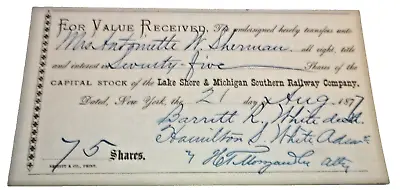 FOR VALUE RECEIVED, The undersigned hereby transfers unto
Mrs Antoinette W. Sherman all right, title
and interest in Seventy-five Shares of the
CAPITAL STOCK OF THE Lake Shore & Michigan Southern Railway Company.
Dated, New York, the 21 day of Aug. 1877
Barritt K. White decd.
Hamilton S. White
75 Shares.
H.T. Morgan Atty
& CO., PRINT.